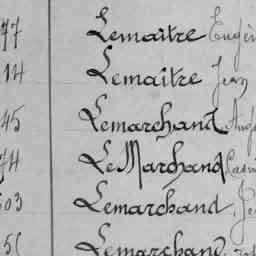 77 Lemaitre Eugèn
14 Lemaitre Jean
45 Lemarchand Aug
74 LeMarchand Casim
503 Lemarchand Je
55 Lemarchand